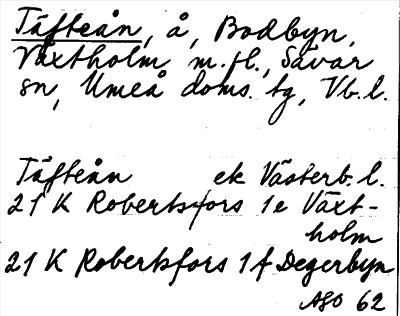 Täfteån, å, Bodbyn,
Växtholm m.fl., Sävar
sn, Umeå doms. tg, Vb.l.
Täfteån ek Västerb.l.
21 K Robertsfors 1e Växt-
holm
21 K Robertsfors 1f Degerbyn
ASO 62